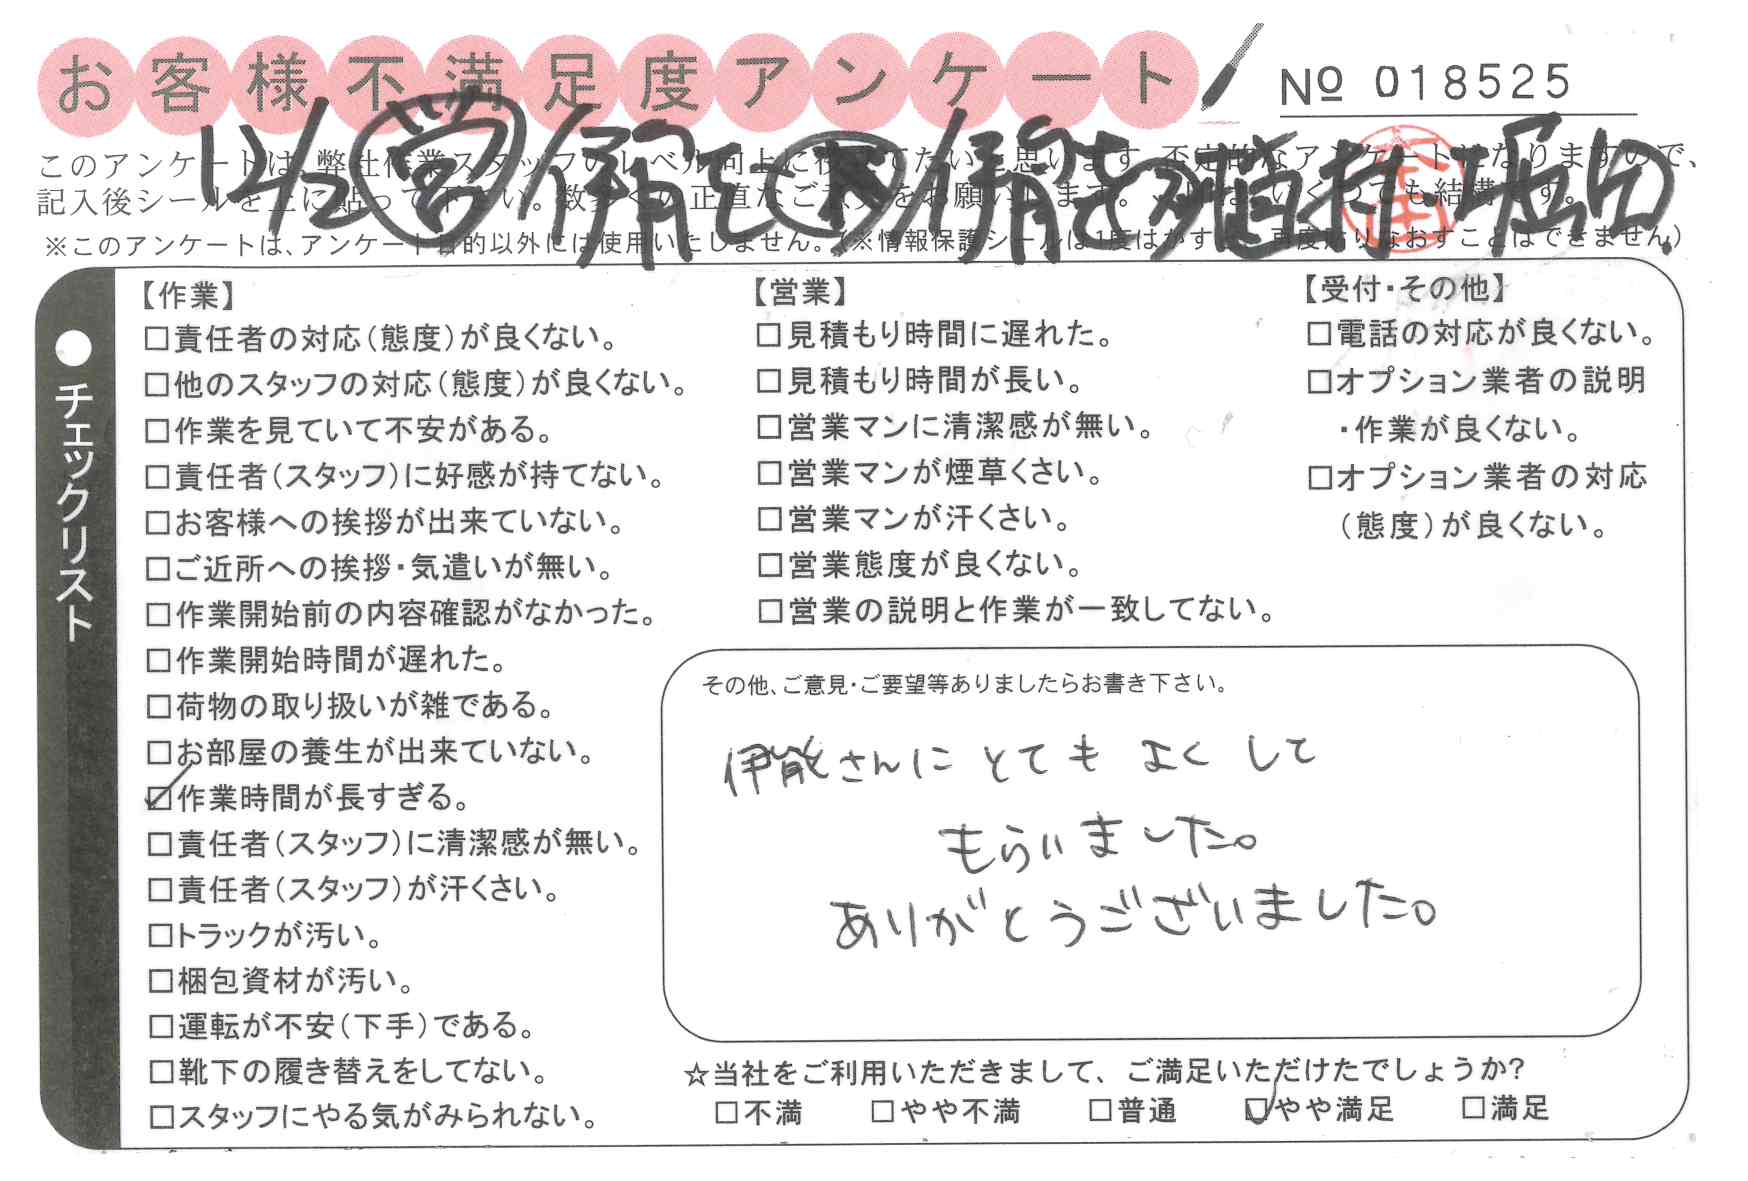 お客様不満足度アンケート
№ 018525
12/2 営 伊能 伊能
このアンケートは、弊社作業スタッフのレベル向上に役立てたいと思います。不定的なアンケートになりますので、
記入後シールを上に貼って下さい。数多くの正直なご意見をお願いします。 いくつでも結構です。
※このアンケートは、アンケート目的以外には使用いたしません。(※情報保護シールは1度はがすと、再度貼りなおすことはできません)
●チェックリスト
【作業】
□責任者の対応(態度)が良くない。
□他のスタッフの対応(態度)が良くない。
□作業を見ていて不安がある。
□責任者(スタッフ)に好感が持てない。
□お客様への挨拶が出来ていない。
□ご近所への挨拶・気遣いが無い。
□作業開始前の内容確認がなかった。
□作業開始時間が遅れた。
□荷物の取り扱いが雑である。
□お部屋の養生が出来ていない。
☑作業時間が長すぎる。
□責任者(スタッフ)に清潔感が無い。
□責任者(スタッフ)が汗くさい。
□トラックが汚い。
□梱包資材が汚い。
□運転が不安(下手)である。
□靴下の履き替えをしてない。
□スタッフにやる気がみられない。
【営業】
□見積もり時間に遅れた。
□見積もり時間が長い。
□営業マンに清潔感が無い。
□営業マンが煙草くさい。
□営業マンが汗くさい。
□営業態度が良くない。
□営業の説明と作業が一致してない。
【受付・その他】
□電話の対応が良くない。
□オプション業者の説明
・作業が良くない。
□オプション業者の対応
(態度)が良くない。
その他、ご意見・ご要望等ありましたらお書き下さい。
伊能さんに とても よく して
もらいました。
ありがとうございました。
☆当社をご利用いただきまして、ご満足いただけたでしょうか?
□不満 □やや不満 □普通 ☑やや満足 □満足